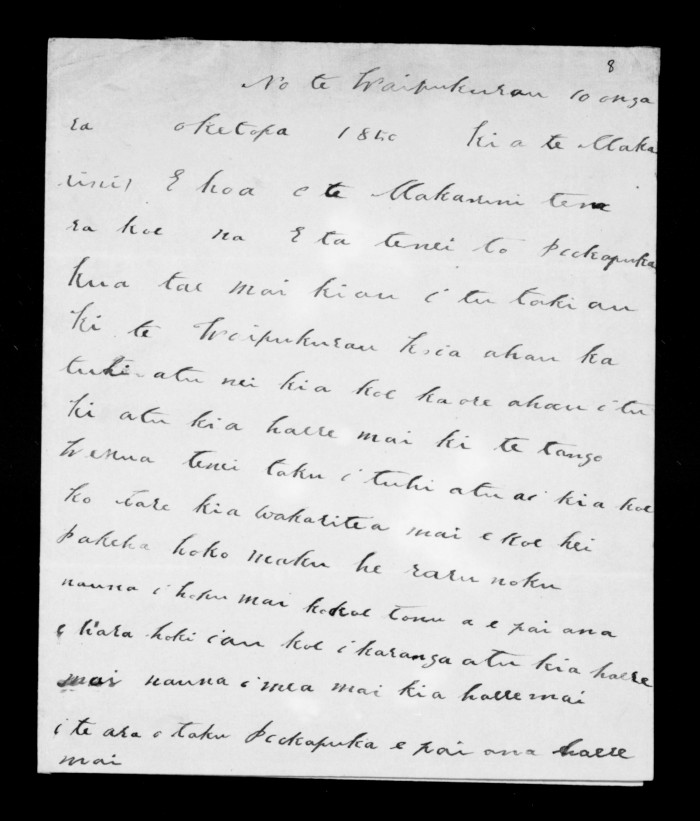 8
No te Waipukurau 10 onga
ra oketopa 1850 ki a te Maka
rini E hoa e te Makarini tena
ra koe na E ta tenei to Pukapuka
kua tae mai kiau i tu taki au
ki te Waipukurau koia ahau ka
tuhi atu nei kia koe kaore ahau i tu
ki atu kia haere mai ki te tango
wenua tenei taku i tuhi atu ai kia koe
ko tare kia wakaritea mai e koe hei
pakeha hoko maku he raru noku
nauna i hoku mai kokoe tonu a e pai ana
e hara hoki i au koe i karanga atu kia haere
mai nauna i mea mai kia haere mai
i te ara o taku Pukapuka e pai ana haere
mai